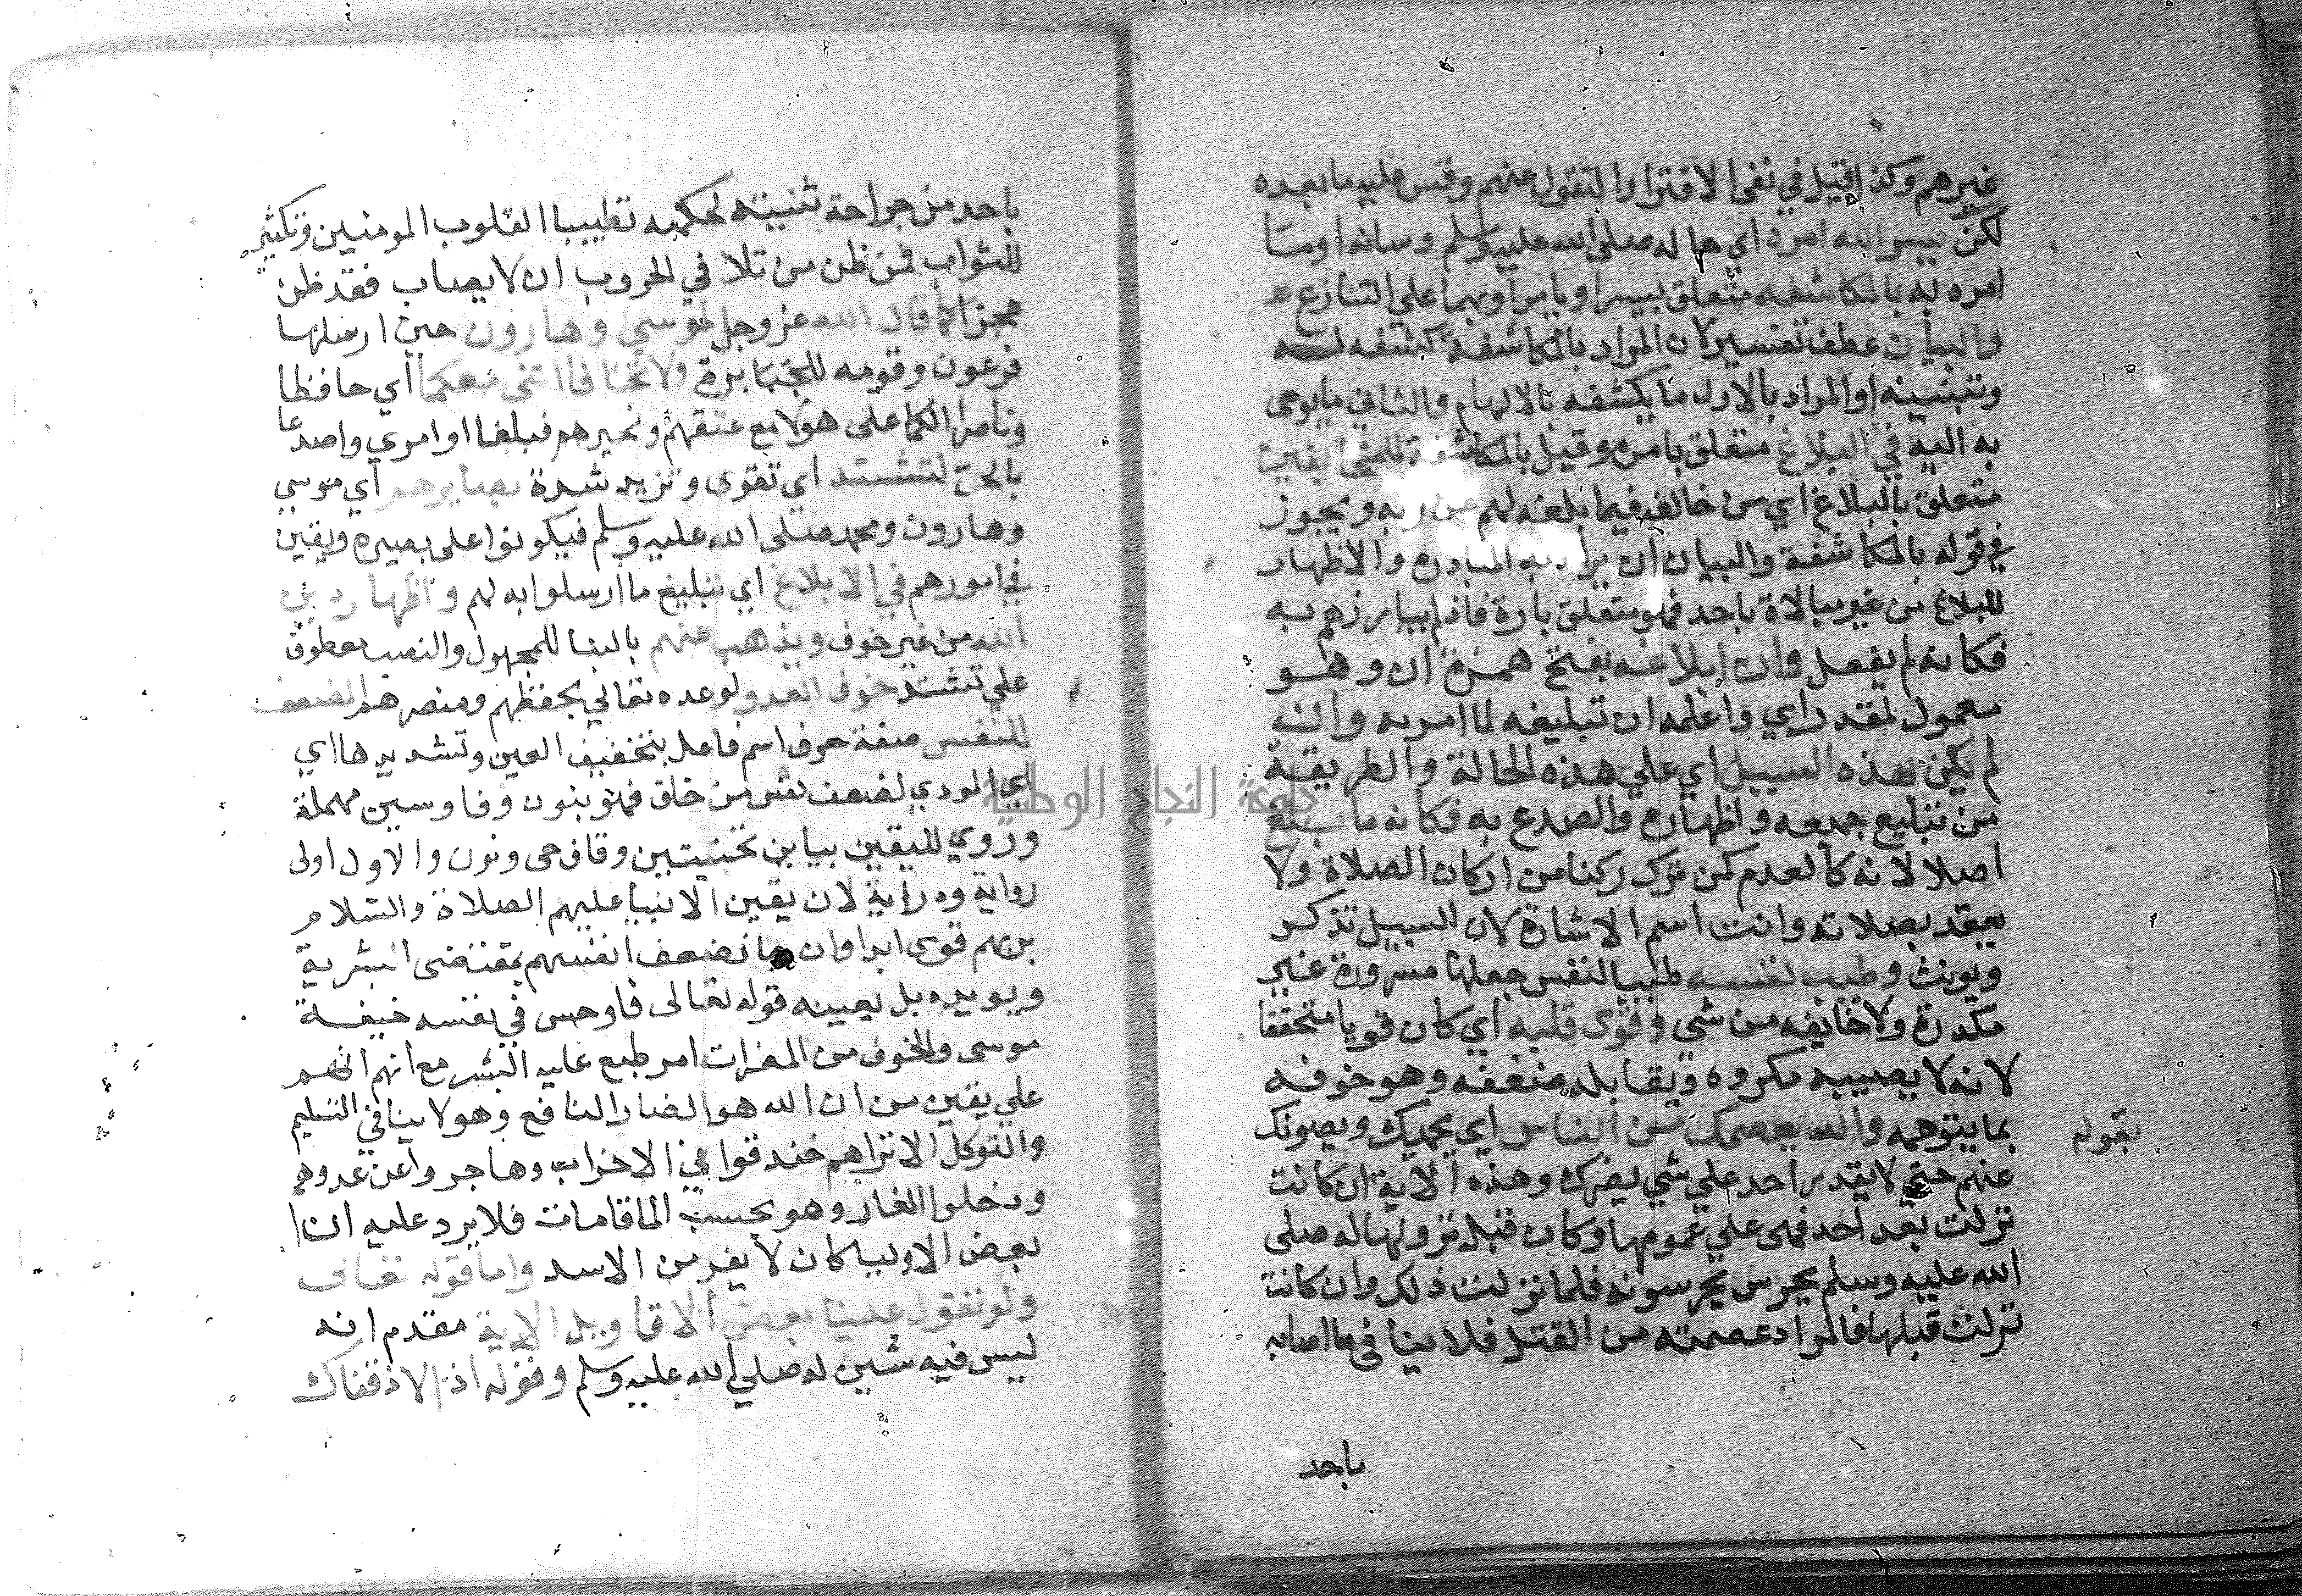 غيرهم وكذا قيل في نفى الافترا والتقول عنهم وقس عليه ما بعده
لكن يسر الله امره اي حاله صلى الله عليه وسلم وسانه او ما
امره به بالمكاشفه متعلق بيسر او بامر او بهما علي التنازع
والبيان عطف تفسير لان المراد بالمكاشفة كشفه له
وتبيينه او المراد بالاول ما يكشفه بالالهام والثاني ما يوحى
به اليه في البلاغ متعلق بامره وقيل بالمكاشفة للمخالفين
متعلق بالبلاغ اي من خالفه فيما بلغه لهم عن ربه ويجوز
في قوله بالمكاشفة والبيان ان يراد به المبادره والاظهار
للبلاغ من غير مبالاة باحد فهو متعلق بارة فاذا لم يبارزهم به
فكانه لم يفعل وان ابلاغه بفتح همزة ان وهو
معمول لمقدر اي واعلمه ان تبليغه لما امر به وان
لم يكن بهذه السبيل اي علي هذه الحالة والطريقة
من تبليغ جمعه واظهاره والصدع به فكانه ما بلغ
اصلا لانه كالعدم كمن ترك ركنا من اركان الصلاة ولا
يعتد بصلاته وانت اسم الاشارة لان السبيل تذكر
ويونث وطيب نفسه طيب النفس جعلها مسرورة غير
مكدرة ولا خايفه من شي وقوى قلبه اي كان قويا متحققا
لانه لا يصيبه مكروه ويقابله ضعفه وهو خوفه
بما يتوهمه والله يعصمك من الناس اي يحميك ويصونك
بقوله
عنهم حتى لا يقدر احد علي شي يضرك وهذه الاية ان كانت
نزلت بعد احد فهى علي عمومها وكان قبل نزولها له صلى
الله عليه وسلم حرس يحرسونه فلما نزلت ذلك وان كانت
نزلت قبلها فالمراد عصمته من القتل فلا ينافى ما اصابه
باحد
باحد من جراحة ثنيته لحكمه تطييبا لقلوب المومنين وتكثير
للثواب فمن ظن من تلا في الحروب ان لا يصاب فقد ظن
عجزا كما قال الله عز وجل لموسي وهارون حين ارسلهما
فرعون وقومه الجبابرة ولا تخافا انني معكما اي حافظا
وناصرا لكما على هولا مع عتقهم وتجبرهم فبلغا اوامري واصدعا
بالحق لتشتد اي تقوى وتزيد شدة بصايرهم اي موسي
وهارون ومحمد صلى الله عليه وسلم فيكونوا على بصيره ويقين
في امورهم في الابلاغ اي تبليغ ما ارسلوا به لهم واظهار دين
الله من غير خوف ويذهب عنهم بالبنا للمجهول والنصب معطوف
علي تشتد خوف العدو لوعده تعالي بحفظهم ونصرهم المضعف
للنفس صفة خوف اسم فاعل بتخفيف العين وتشديدها اي
اي المودي لضعف نفس من خاف فهو بنون وفا وسين مهملة
وروي لليقين بيايين تحتيتين وقاف حى ونون والاول اولى
رواية ودراية لان يقين الانبيا عليهم الصلاة والسلام
بربهم قوى ابدا وان جا تضعف انفسهم بمقتضى البشرية
ويويده بل يعينه قوله تعالى فاوجس في نفسه خيفة
موسى والخوف من المضرات امر طبع عليه البشر مع انهم
علي يقين من ان الله هو الضار النافع وهو لا ينافي التسليم
والتوكل الا تراهم خندقوا في الاحزاب وهاجروا عن عدوهم
ودخلوا الغار وهو بحسب المقامات فلا يرد عليه ان
بعض الاوليا كان لا يفر من الاسد واما قوله تعالى
ولو تقول علينا بعض الاقاويل الاية مقدم انه
ليس فيه شين له صلي الله عليه وسلم وقوله اذا لاذقناك
جامعة النجاح الوطنية